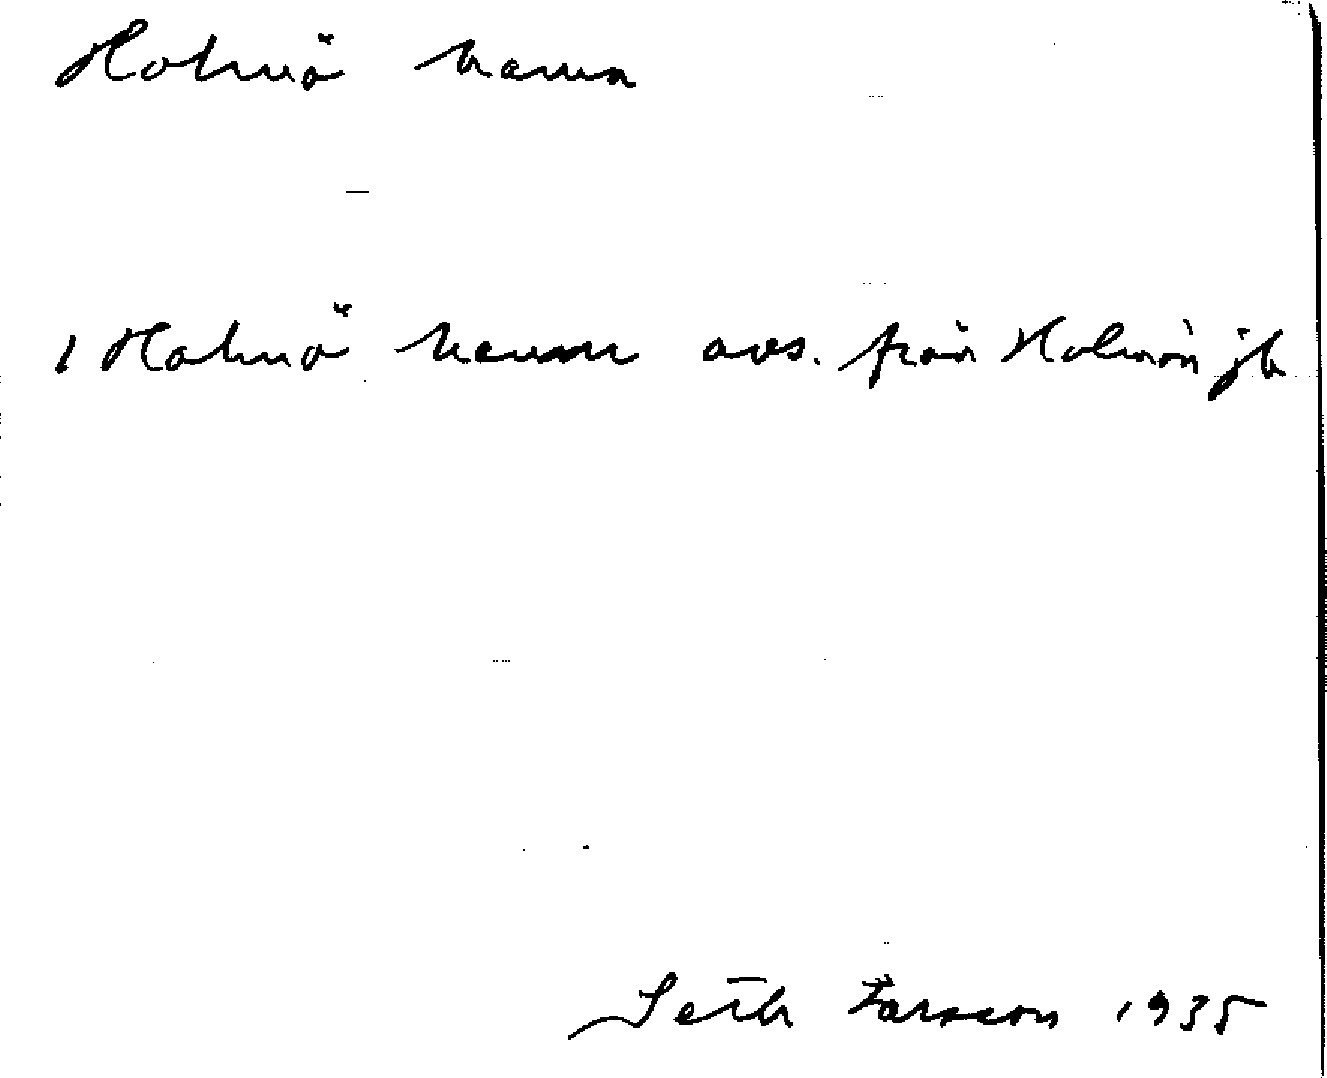 Holmö hamn
1 Holmö hamn avs. från Holmön jb
Seth Larsson 1935